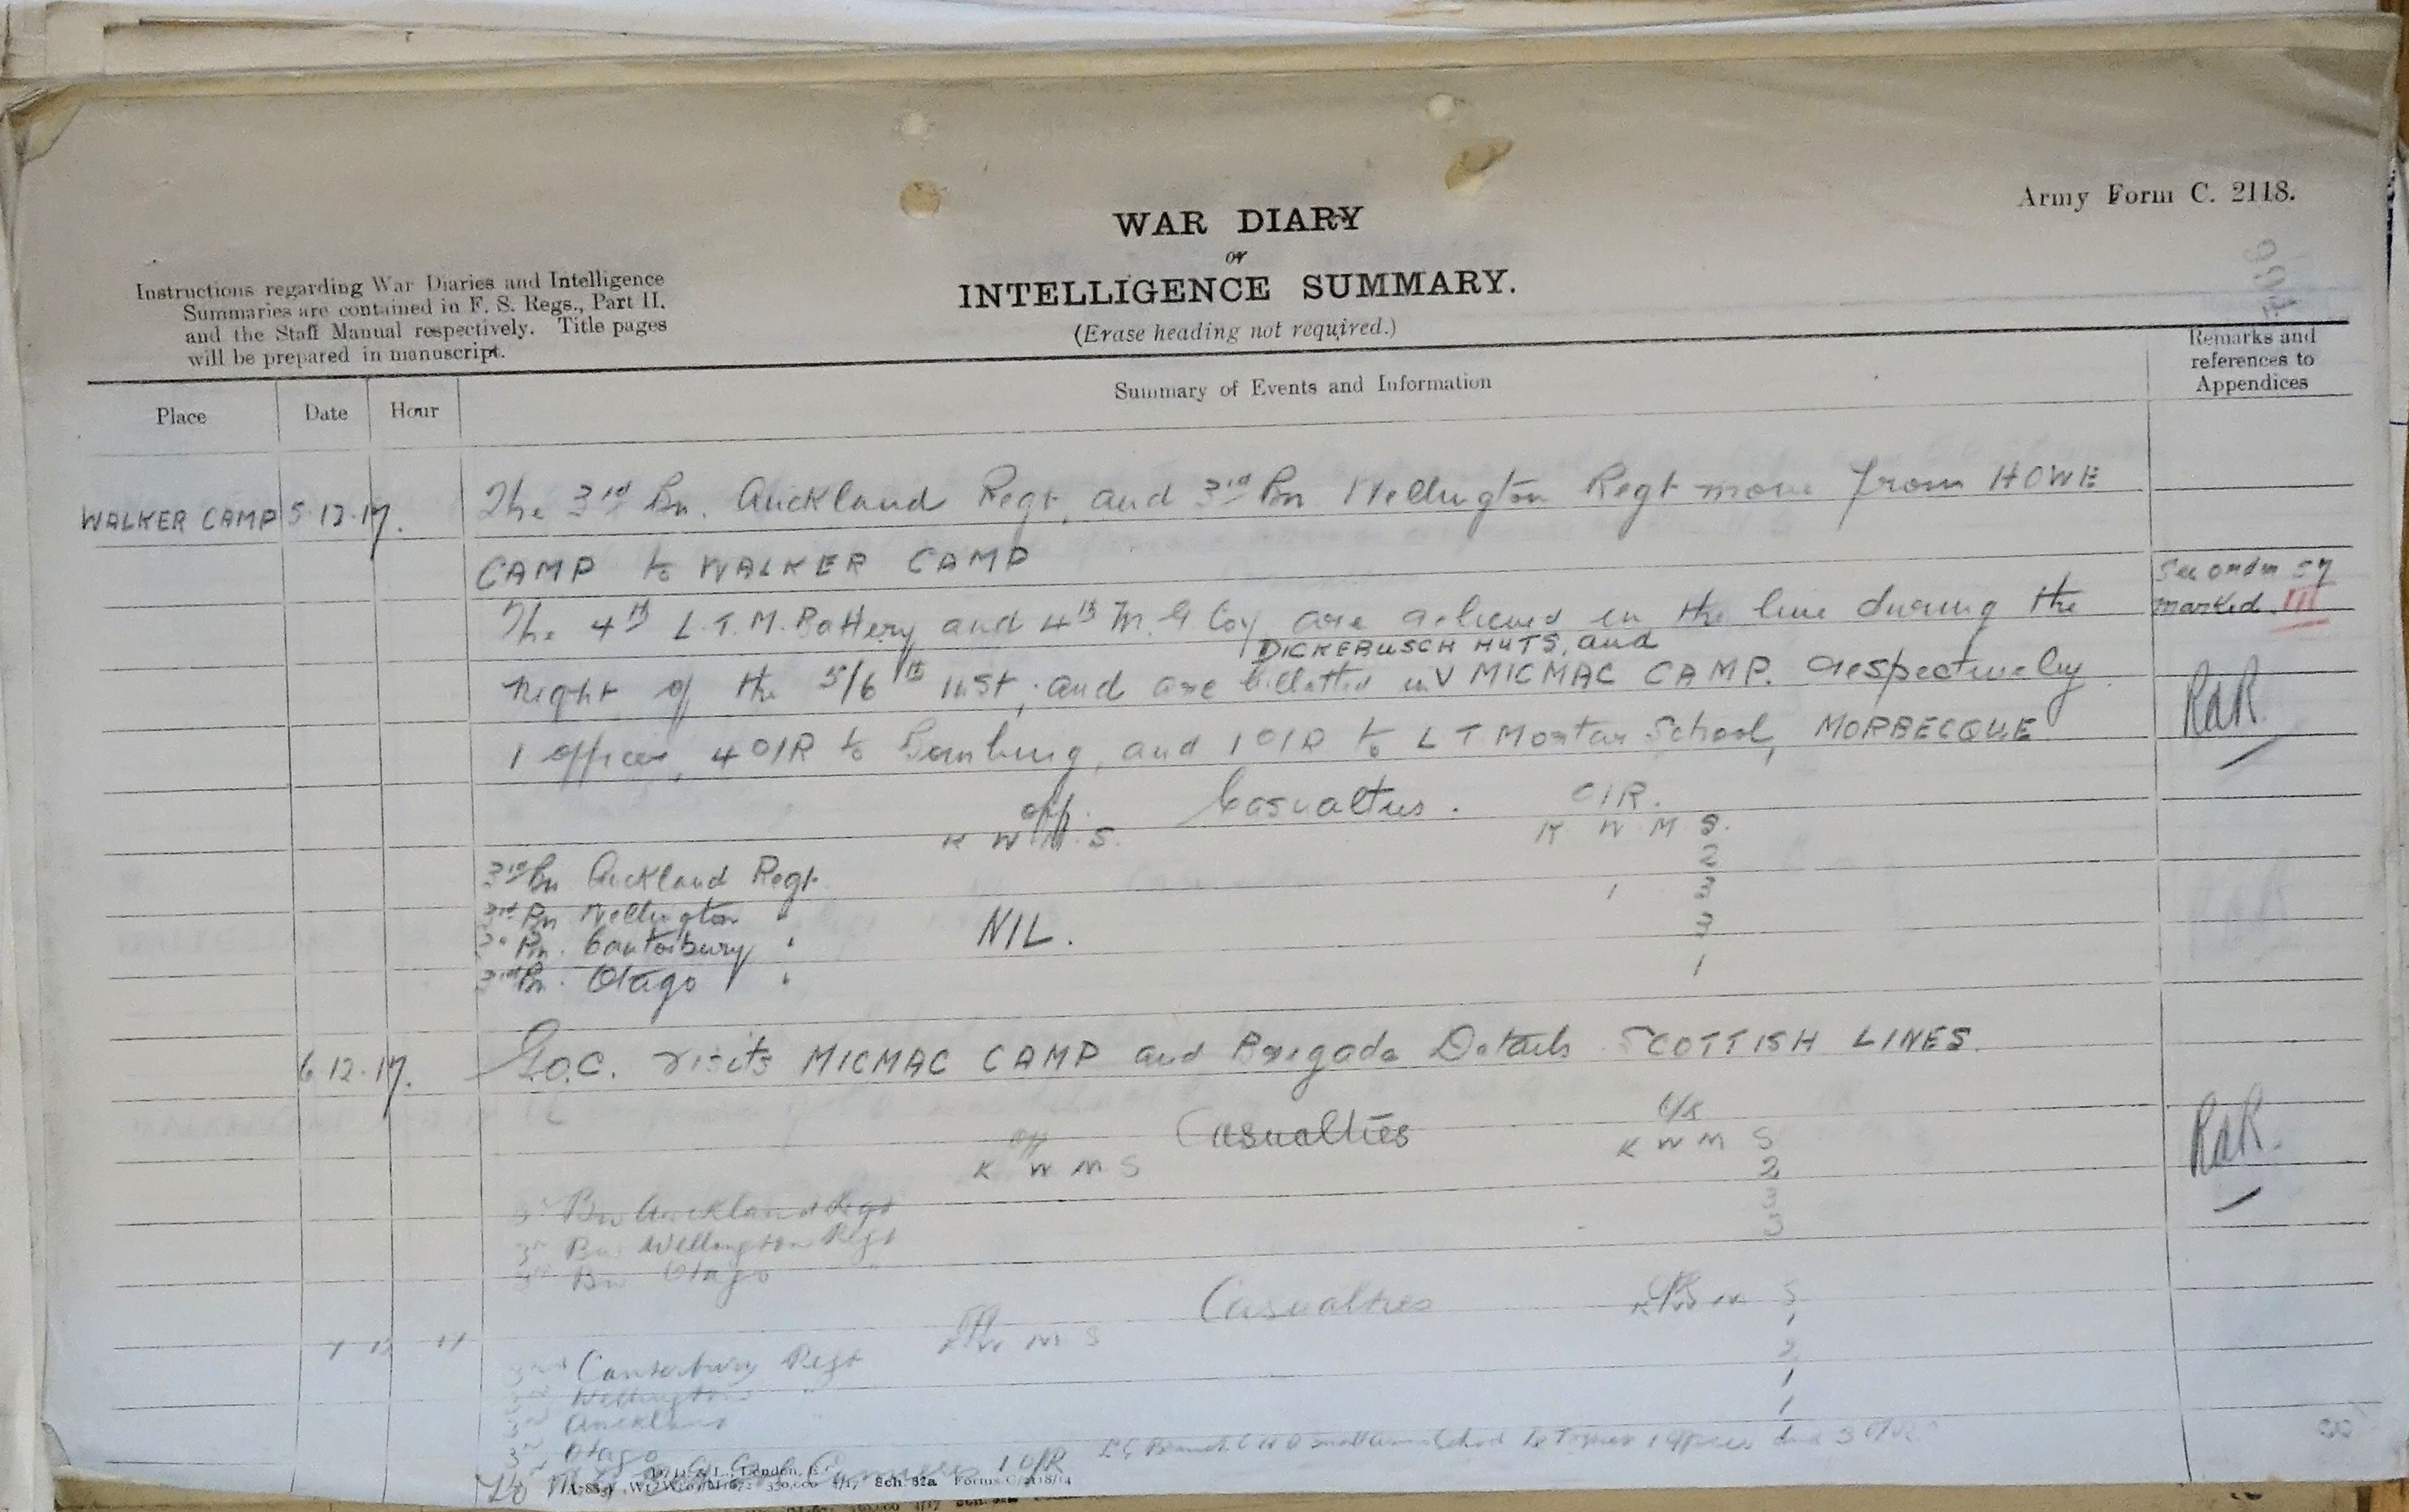 Army Form C. 2118.
WAR DIARY
or
INTELLIGENCE SUMMARY.
(Erase heading not required.)
Instructions regarding War Diaries and Intelligence
Summaries are contained in F. S. Regs., Part II.
and the Staff Manual respectively. Title pages
will be prepared in manuscript.
Place Date Hour Summary of Events and Information Remarks and references to Appendices
WALKER CAMP 5.12.17. The 3rd Bn. Auckland Regt, and 3rd Bn Wellington Regt move from HOWE
CAMP to WALKER CAMP
The 4th L.T.M. Battery and 4th M.G. Coy are relieved in the line during the
See order 57
marked III
DICKEBUSCH HUTS, and
night of the 5/6th inst, and are billetted in V MICMAC CAMP. respectively
1 officer, 4 O/R to Bombing, and 1 O/R to L T Mortar School, MORBECQUE
RaR
Off. Casualties. O/R.
K W M S. K W M S.
3rd Bn Auckland Regt 2
3rd Bn Wellington " 1 3
3rd Bn. Canterbury " NIL. 3
3rd Bn. Otago " 1
6.12.17. G.O.C. visits MICMAC CAMP and Brigade Details SCOTTISH LINES.
Off Casualties O/R
K W M S K W M S
RaR.
3rd Bn Auckland Regt 2
3rd Bn Wellington Regt 3
3rd Bn Otago " 3
Off Casualties O/R
K W M S K W M S
3rd Canterbury Regt 1
3rd Wellington " 2
3rd Auckland 1
3rd Otago 1
1 O/R
1 Officer and 3 O/R
Sch. 52a Forms C/2118/14